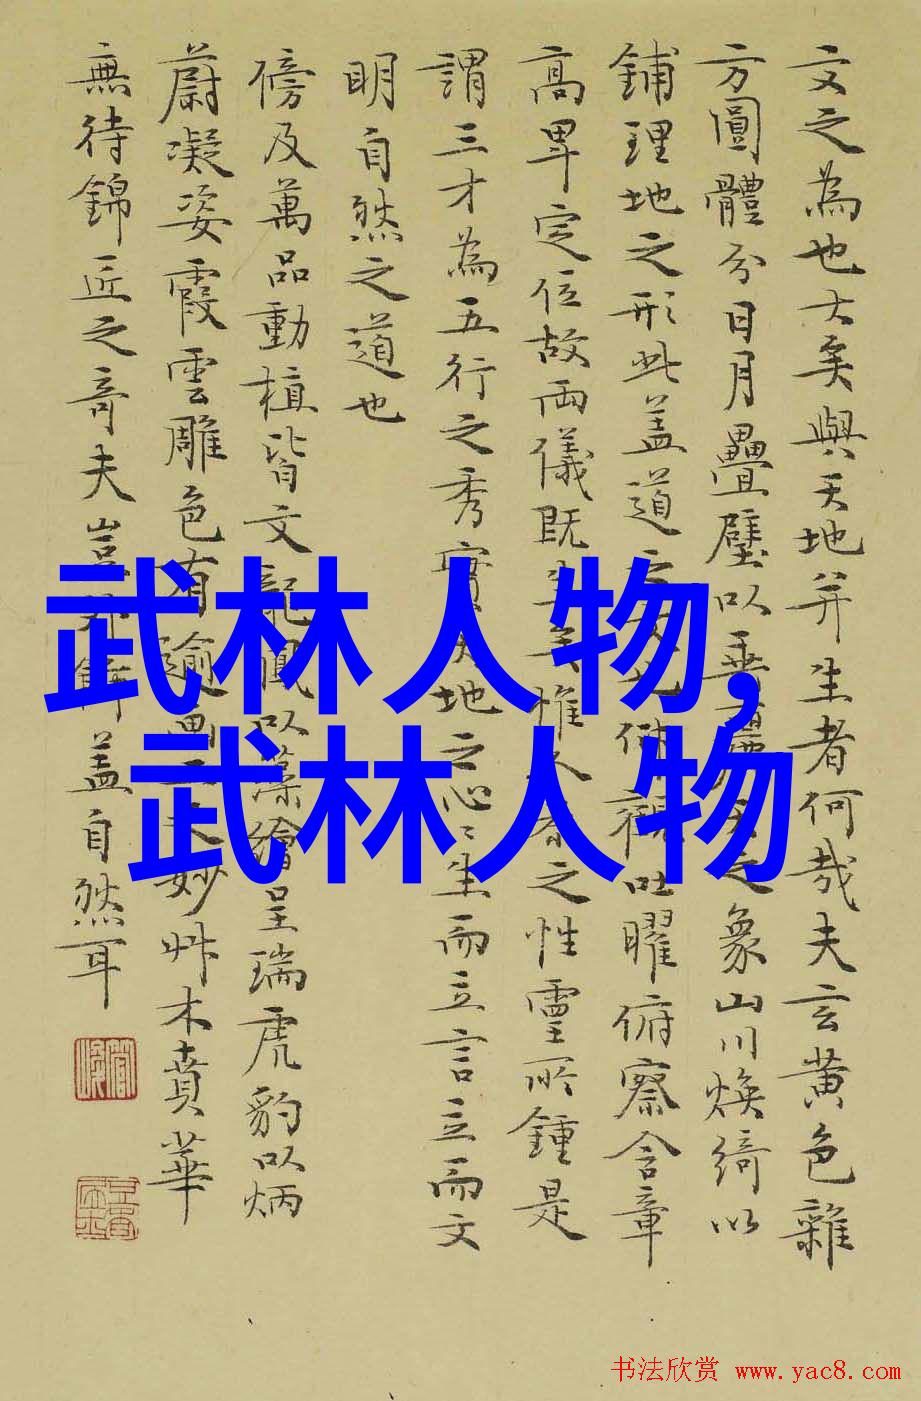 武林人物,
武林人物
文之為也大矣與天地并生者何哉夫玄黃色雜
方圓體分日月疊璧以垂麗天之象山川煥綺以
鋪理地之形此蓋道之文也仰觀吐曜俯察含章
高卑定位故兩儀既生矣惟人參之性靈所鍾是
謂三才為五行之秀實天地之心〻生而立言立而文
明自然之道也
傍及萬品動植皆文龍鳳以藻繪呈瑞虎豹以炳
蔚凝姿霞雲雕色有逾畫工之妙艸木賁華
無待錦匠之奇夫豈外飾蓋自然耳
书法欣赏 www.yac8.com